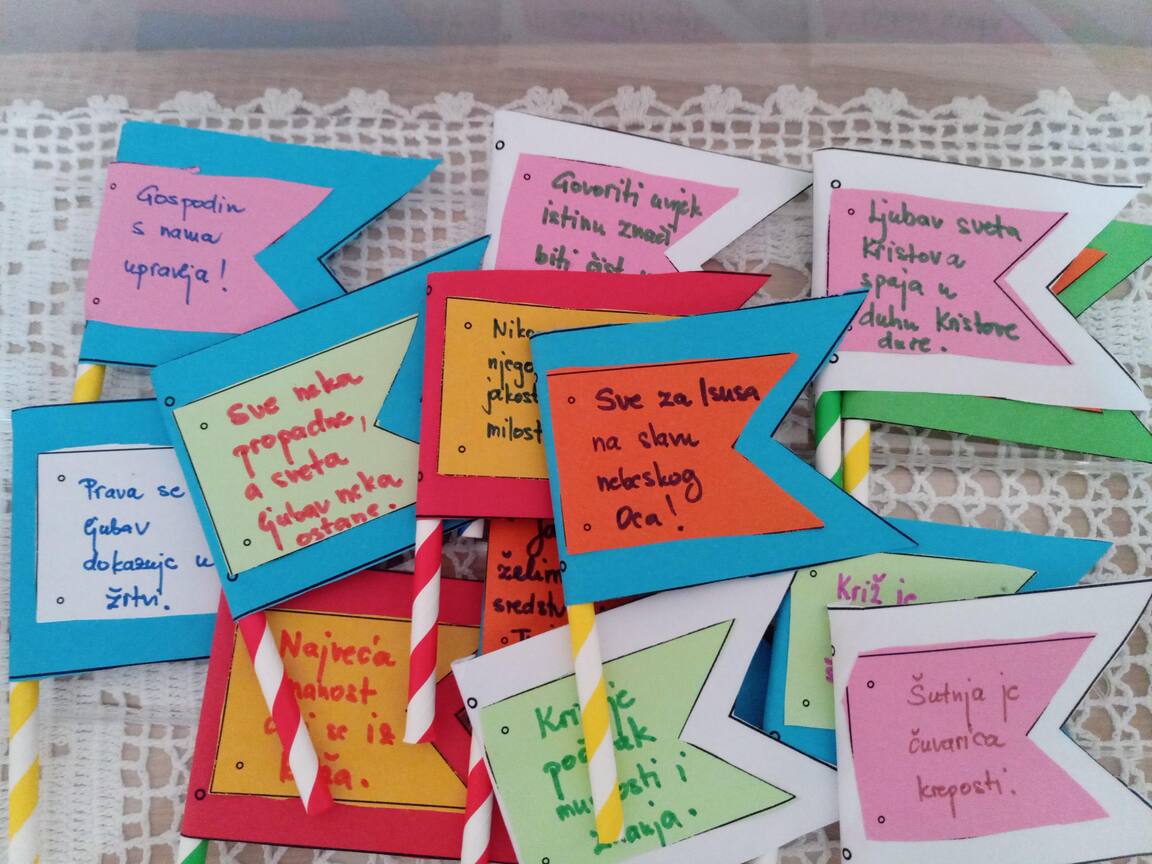 Gospodin
s nama
upravlja!
Govoriti uvijek
istinu znači
biti čist
Ljubav sveta
Kristova
spaja u
duhu Kristove
duše.
Sve neka
propadne,
a sveta
ljubav neka
ostane.
njego
jakost
milost
Sve za Isusa
na slavu
nebeskog
Oca!
Prava se
ljubav
dokazuje u
žrtvi.
Najveća
se iz
želim
sredstv
je
i
Križ je
Šutnja je
čuvarica
kreposti.